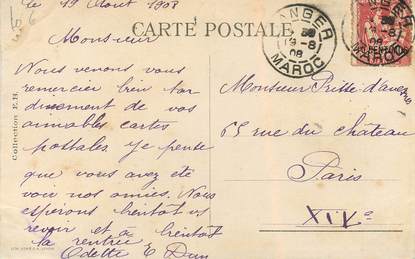 le 19 Août 1908
CARTE POSTALE
Monsieur
Nous venons vous
remercier bien tar
divement de vos
aimables cartes
postales Je pense
que vous avez été
voir nos amies. Nous
espérons bientôt vs
revoir et à bientôt
la rentrée
Odette E Dun
Collection E.H.
TANGER
19-8
08
MAROC
Monsieur Prisse d'avennes
65 rue du château
Paris
XIVe